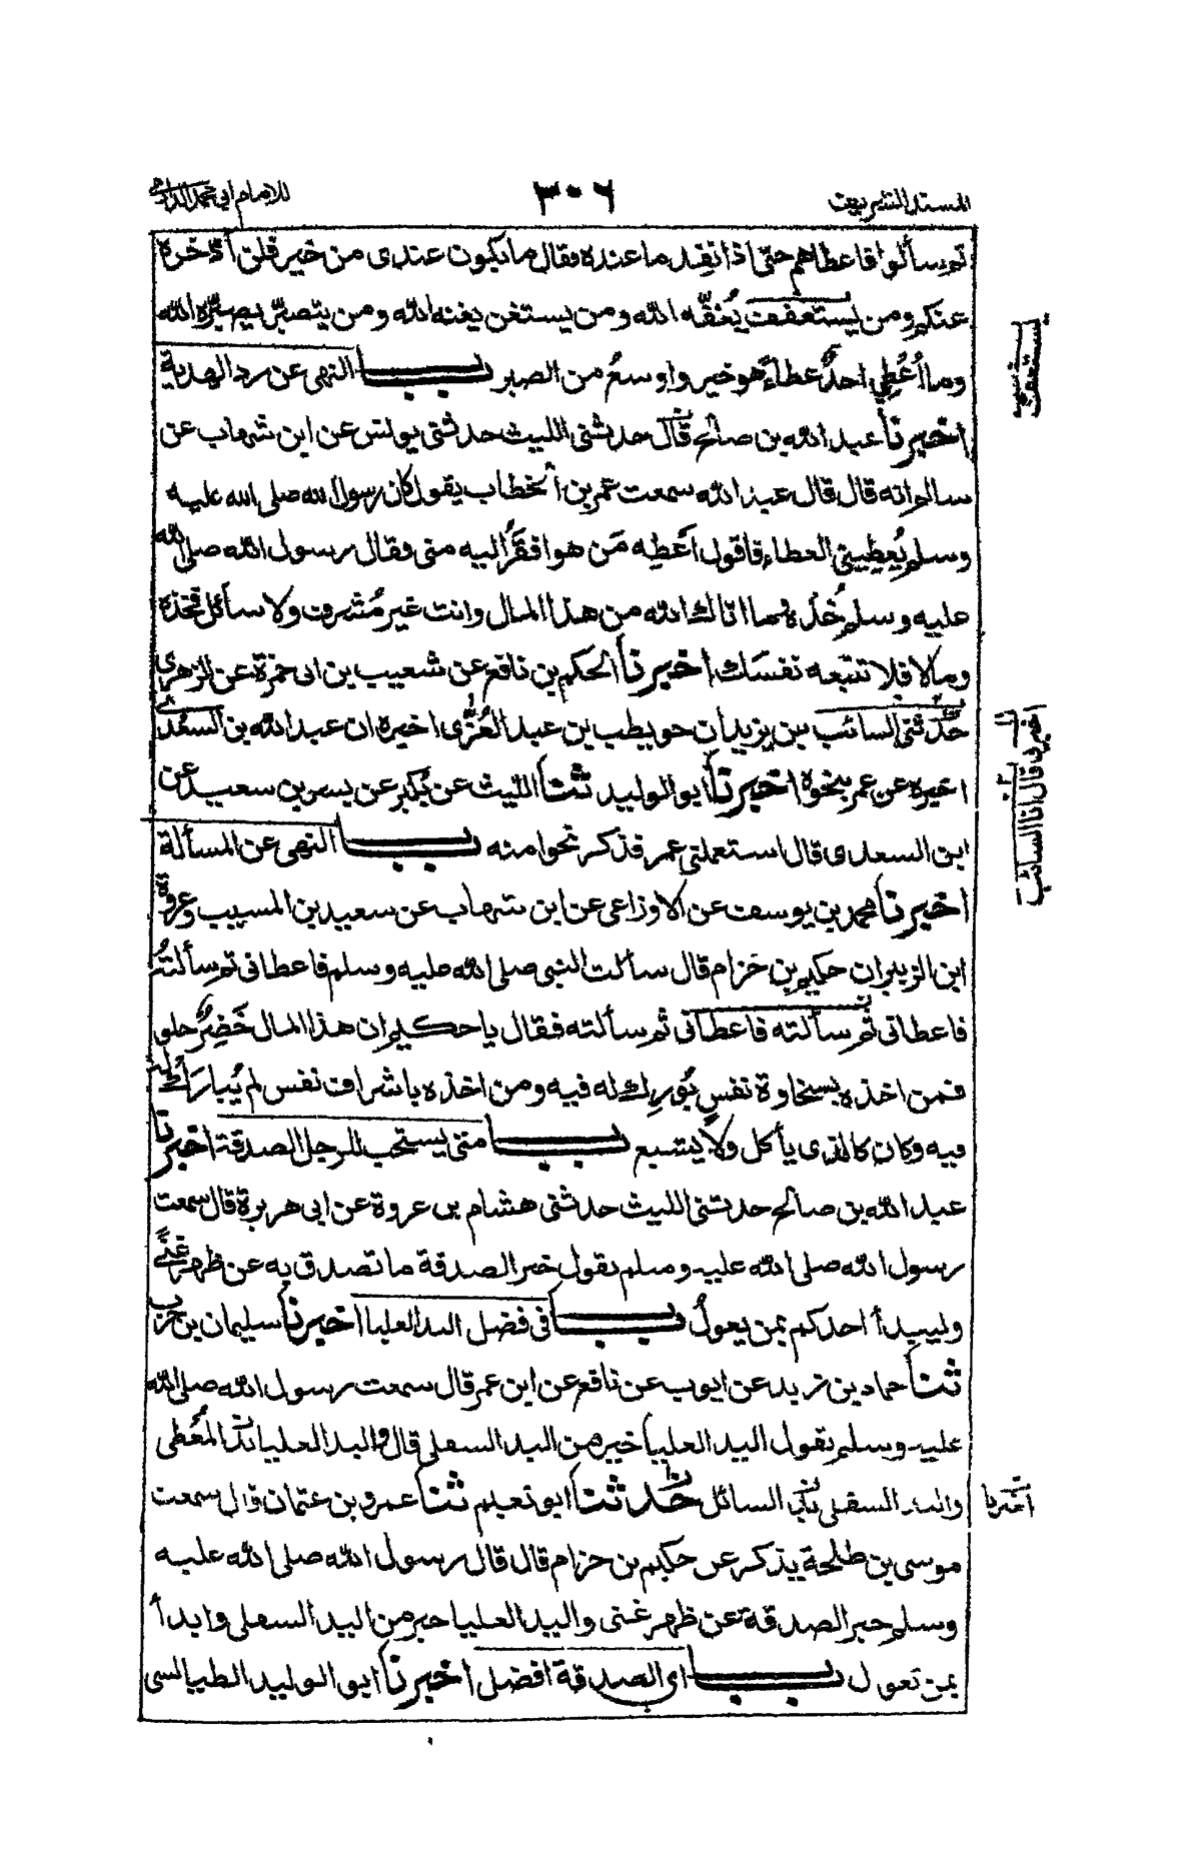 المسند الشريف
٣٠٦
للامام ابي محمد الدارمي
ثم سألوا فاعطاهم حتى اذا نفد ما عنده فقال ما يكون عندي من خير فلن أدّخره
عنكم ومن يستعفف يُعفّه الله ومن يستغن يغنه الله ومن يتصبر يصبّره الله
وما أُعْطِي احدٌ عطاءً هو خير واوسعُ من الصبر باب النهي عن رد الهدية
اخبرنا عبد الله بن صالح قال حدثني الليث حدثني يونس عن ابن شهاب عن
سالم انه قال قال عبد الله سمعت عمر بن الخطاب يقول كان رسول الله صلى الله عليه
وسلم يُعطِيني العطاء فاقول اَعْطِه مَن هو افقَرُ اليه مني وقال رسول الله صلى الله
عليه وسلم خُذْه وما اتاك الله من هذا المال وانت غير مُشرِف ولا سائل فخذه
وما لا فلا تتبعه نفسَك اخبرنا الحكم بن نافع عن شعيب بن ابي حمزة عن الزهري
حدثني السائب بن يزيد ان حويطب بن عبد العُزّى اخبره ان عبد الله بن السعدي
اخبره عن عمر بنحوه اخبرنا ابو الوليد ثنا الليث عن بُكير عن بسر بن سعيد عن
ابن السعدي قال استعملني عمر فذكر نحوا منه باب النهي عن المسألة
اخبرنا محمد بن يوسف عن الاوزاعي عن ابن شهاب عن سعيد بن المسيب وعروة
ابن الزبير ان حكيم بن حزام قال سألت النبي صلى الله عليه وسلم فاعطاني ثم سألتُه
فاعطاني ثم سألته فاعطاني ثم سألته فقال يا حكيم ان هذا المال خَضِرٌ حلو
فمن اخذه بسخاوة نفسٍ بُورِك له فيه ومن اخذه باشراف نفس لم يُبارَك له
فيه وكان كالذي يأكل ولا يشبع باب متى يستحب للرجل الصدقة اخبرنا
عبد الله بن صالح حدثني الليث حدثني هشام بن عروة عن ابي هريرة قال سمعت
رسول الله صلى الله عليه وسلم يقول خير الصدقة ما تصدق به عن ظهر غنًى
وليبدأ احدكم بمن يعولُ باب في فضل اليد العليا اخبرنا سليمان بن حرب
ثنا حماد بن زيد عن ايوب عن نافع عن ابن عمر قال سمعت رسول الله صلى الله
عليه وسلم يقول اليد العليا خير من اليد السفلى قال واليد العليا يد المُعْطي
واليد السفلى يد السائل حدثنا ابو نعيم ثنا عمرو بن عثمان قال سمعت
موسى بن طلحة يذكر عن حكيم بن حزام قال قال رسول الله صلى الله عليه
وسلم خير الصدقة عن ظهر غنى واليد العليا خير من اليد السفلى وابدأ
بمن تعول باب اي الصدقة افضل اخبرنا ابو الوليد الطيالسي
يستعف
اخبرني قال انا السائب
اخبرنا